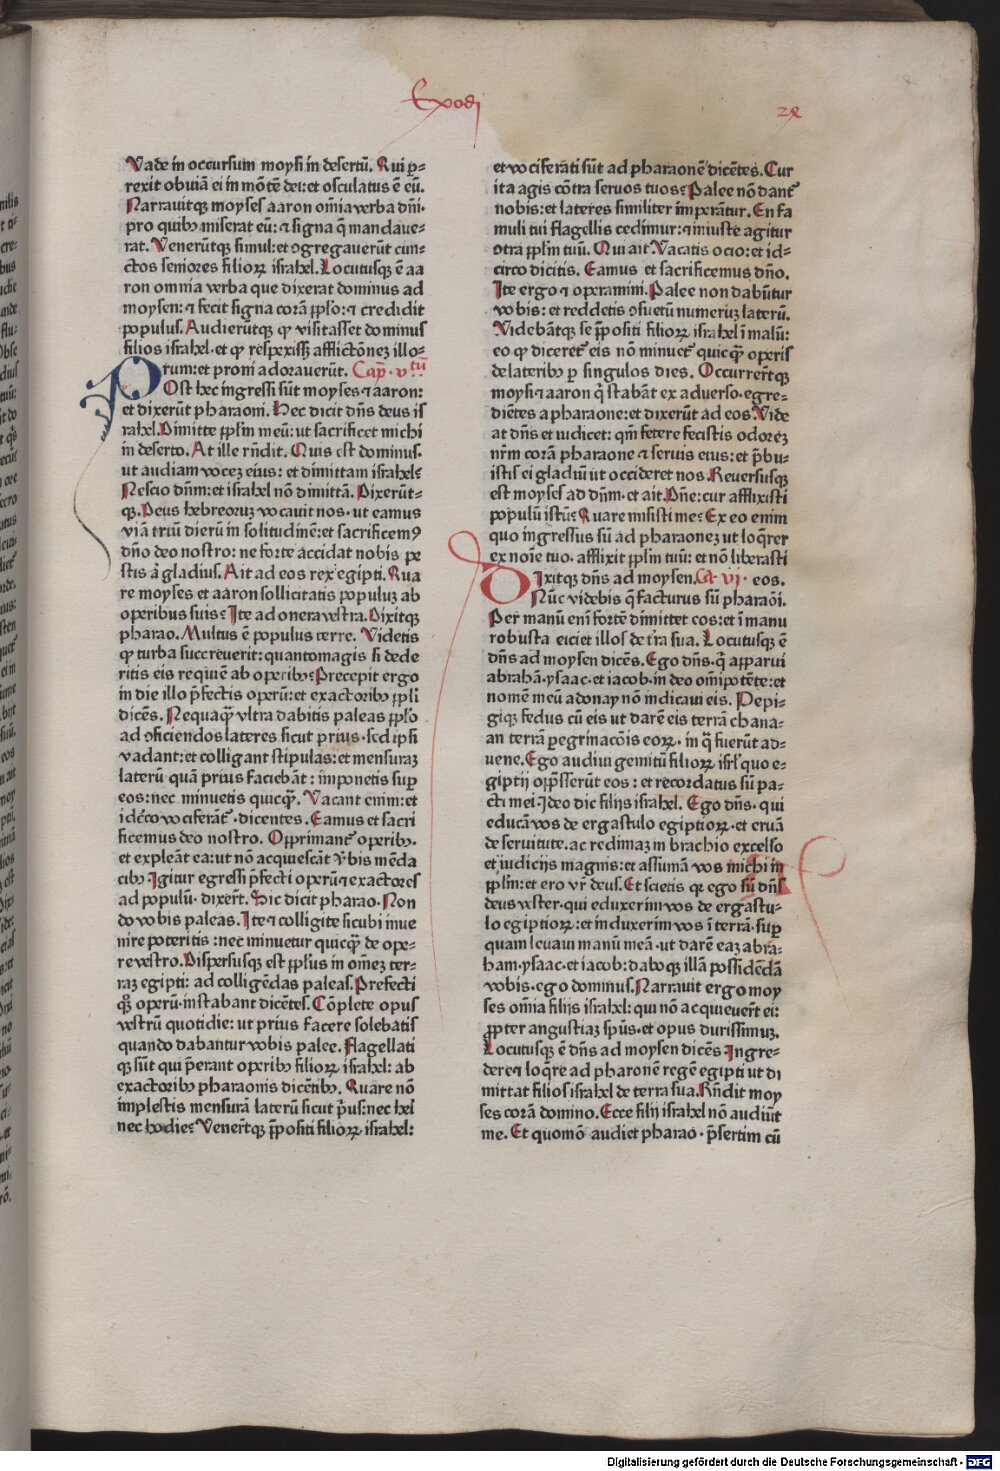 Exodi
28
Vade in occursum moysi in desertū. Qui p̲-
rexit obuiā ei in mōtē dei: et osculatus ē eū.
Narrauitqꝫ moyses aaron om̄ia verba dn̄i·
pro quibꝰ miserat eū: ⁊ signa q̄ mandaue-
rat. Venerūtqꝫ simul: et ꝯgregauerūt cun-
ctos seniores filioꝝ israhel. Locutusqꝫ ē aa
ron omnia verba que dixerat dominus ad
moysen: ⁊ fecit signa corā pp̄lo: ⁊ credidit
populus. Audierūtqꝫ ꝙ visitasset dominus
filios israhel· et ꝙ respexissꝫ afflictōneꝫ illo-
rum: et proni adorauerūt. Cap̄· vtū
POst hec ingressi sūt moyses ⁊ aaron:
et dixerūt pharaoni. Hec dicit dn̄s deus is
rahel. Dimitte pp̄lm meū: ut sacrificet michi
in deserto. At ille rn̄dit. Quis est dominus·
ut audiam voceꝫ eius: et dimittam israhel?
Nescio dn̄m: et israhel nō dimittā. Dixerūt-
qꝫ. Deus hebreoruꝫ vocauit nos· ut eamus
viā triū dierū in solitudinē: et sacrificemꝰ
dn̄o deo nostro: ne forte accidat nobis pe
stis aī gladius. Ait ad eos rex egipti. Qua
re moyses et aaron sollicitatis populuꝫ ab
operibus suis? Ite ad onera vestra. Dixitqꝫ
pharao. Multus ē populus terre. Videtis
ꝙ turba succreuerit: quantomagis si dede
ritis eis requiē ab operibꝰ? Precepit ergo
in die illo p̄fectis operū: et exactoribꝰ pp̄li
dicēs. Nequaqꝫ̄ vltra dabitis paleas pp̄lo
ad ꝯficiendos lateres sicut prius· sed ipsi
vadant: et colligant stipulas: et mensuraꝫ
laterū quā prius faciebāt: imponetis sup̲
eos: nec minuetis quicqꝫ̄. Vacant enim: et
idēco vociferāt̉· dicentes. Eamus et sacri
ficemus deo nostro. Opprimant̉ operibꝰ·
et expleāt ea: ut nō acquiescāt v̉bis mēda
cibꝰ Igitur egressi p̄fecti operū ⁊ exactores
ad populū· dixer̄t. Sic dicit pharao· Non
do vobis paleas. Ite ⁊ colligite sicubi inue
nire poteritis: nec minuetur quicqꝫ̄ de ope-
re vestro. Dispersusqꝫ est pp̄lus in om̄eꝫ ter-
raꝫ egipti: ad colligēdas paleas. Prefecti
qꝫ̄ operū· instabant dicētes. Cōplete opus
vestrū quotidie: ut prius facere solebatis
quando dabantur vobis palee. Flagellati
qꝫ sūt qui p̄erant operibꝰ filioꝝ israhel: ab
exactoribꝰ pharaonis dicētibꝰ. Quare nō
implestis mensurā laterū sicut p̄us: nec heri
nec hodie? Vener̄tqꝫ p̄positi filioꝝ israhel:
et vociferati sūt ad pharaonē dicētes. Cur
ita agis cōtra seruos tuos? Palee nō dant̉
nobis: et lateres similiter imperāt̉ur. En fa
muli tui flagellis cedimur: ⁊ iniuste agitur
ꝯtra pp̄lm tuū. Qui ait. Vacatis ocio: et id-
circo dicitis. Eamus et sacrificemus dn̄o.
Ite ergo ⁊ operamini. Palee non dabūtur
vobis: et reddetis ꝯsuetū numeruꝫ laterū.
Videbātqꝫ se p̄positi filioꝝ israhel ī malū:
eo ꝙ diceret̉ eis nō minuet̉ quicqꝫ̄ operis
de lateribꝰ p̲ singulos dies. Occurrer̄tqꝫ
moysi ⁊ aaron q̄ stabāt ex aduerso· egre-
diētes a pharaone: et dixerūt ad eos. Vide
at dn̄s et iudicet: qm̄ fetere fecistis odoreꝫ
nr̄m corā pharaone ⁊ seruis eius: et p̄bu-
istis ei gladiū ut occideret nos. Reuersusqꝫ
est moyses ad dn̄m· et ait. Dn̄e: cur afflixisti
populū istū? Quare misisti me? Ex eo enim
quo ingressus sū ad pharaoneꝫ ut loq̄rer
ex noīe tuo· afflixit pp̄lm tuū: et nō liberasti
DIxitqꝫ dn̄s ad moysen. Ca· vj· eos.
Nūc videbis q̄ facturus sū pharaōi.
Per manū enī fortē dimittet eos: et ī manu
robusta eiciet illos de t̄ra sua. Locutusqꝫ ē
dn̄s ad moysen dicēs. Ego dn̄s· q̄ apparui
abrahā· ysaac· et iacob· in deo om̄ipotēte: et
nomē meū adonay nō indicaui eis. Pepi-
giqꝫ fedus cū eis ut darē eis terrā chana-
an terrā p̲egrinacōis eoꝝ· in q̄ fuerūt ad-
uene. Ego audiui gemitū filioꝝ isrl̄ quo e-
giptij opp̄sserūt eos: et recordatus sū pa-
cti mei· Ideo dic filijs israhel. Ego dn̄s· qui
educā vos de ergastulo egiptioꝝ· et eruā
de seruitute. ac redimaꝫ in brachio excelso
et iudicijs magnis: et assumā vos michi in
pp̄lm: et ero vr̄ deus. Et scietis qꝫ ego sū dn̄s
deus vester· qui eduxerim vos de ergastu-
lo egiptioꝝ: et induxerim vos ī terrā· sup̲
quam leuaui manū meā· ut darē eaꝫ abra-
ham· ysaac· et iacob: daboqꝫ illā possidēdā
vobis· ego dominus. Narrauit ergo moy
ses om̄ia filijs israhel: qui nō acquieuer̄t ei:
propter angustiaꝫ sp̄us· et opus durissimuꝫ.
Locutusqꝫ ē dn̄s ad moysen dicēs Ingre-
dere ⁊ loq̄re ad pharonē regē egipti ut di
mittat filios israhel de terra sua. Rn̄dit moy
ses corā domino. Ecce filij israhel nō audiūt
me. Et quomō audiet pharao· p̄sertim cū
Digitalisierung gefördert durch die Deutsche Forschungsgemeinschaft - DFG